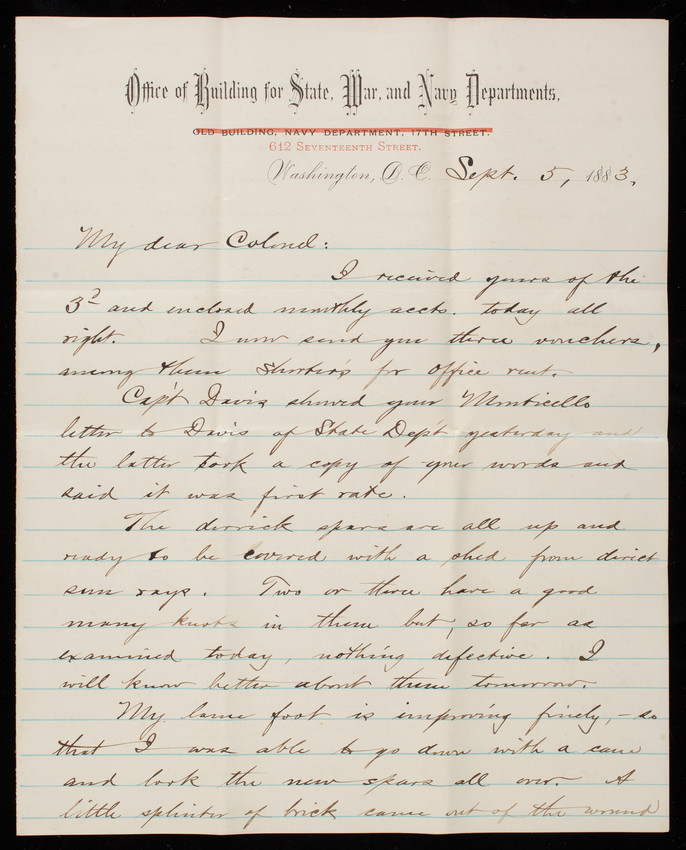 Office of Building for State, War, and Navy Departments.
OLD BUILDING, NAVY DEPARTMENT, 17TH STREET.
612 SEVENTEENTH STREET.
Washington, D. C. Sept. 5, 1883.
My dear Colonel:
I received yours of the
3d and enclosed monthly accts. today all
right. I now send you three vouchers,
among them for office rent.
Capt Davis showed your Monticello
letter to Davis of State Dept yesterday and
the latter took a copy of your words and
said it was first rate.
The derrick spars are all up and
ready to be covered with a shed from direct
sun rays. Two or three have a good
many knots in them but, so far as
examined today, nothing defective. I
will know better about them tomorrow.
My lame foot is improving finely, – so
that I was able to go down with a cane
and look the new spars all over. A
little splinter of brick came out of the wound